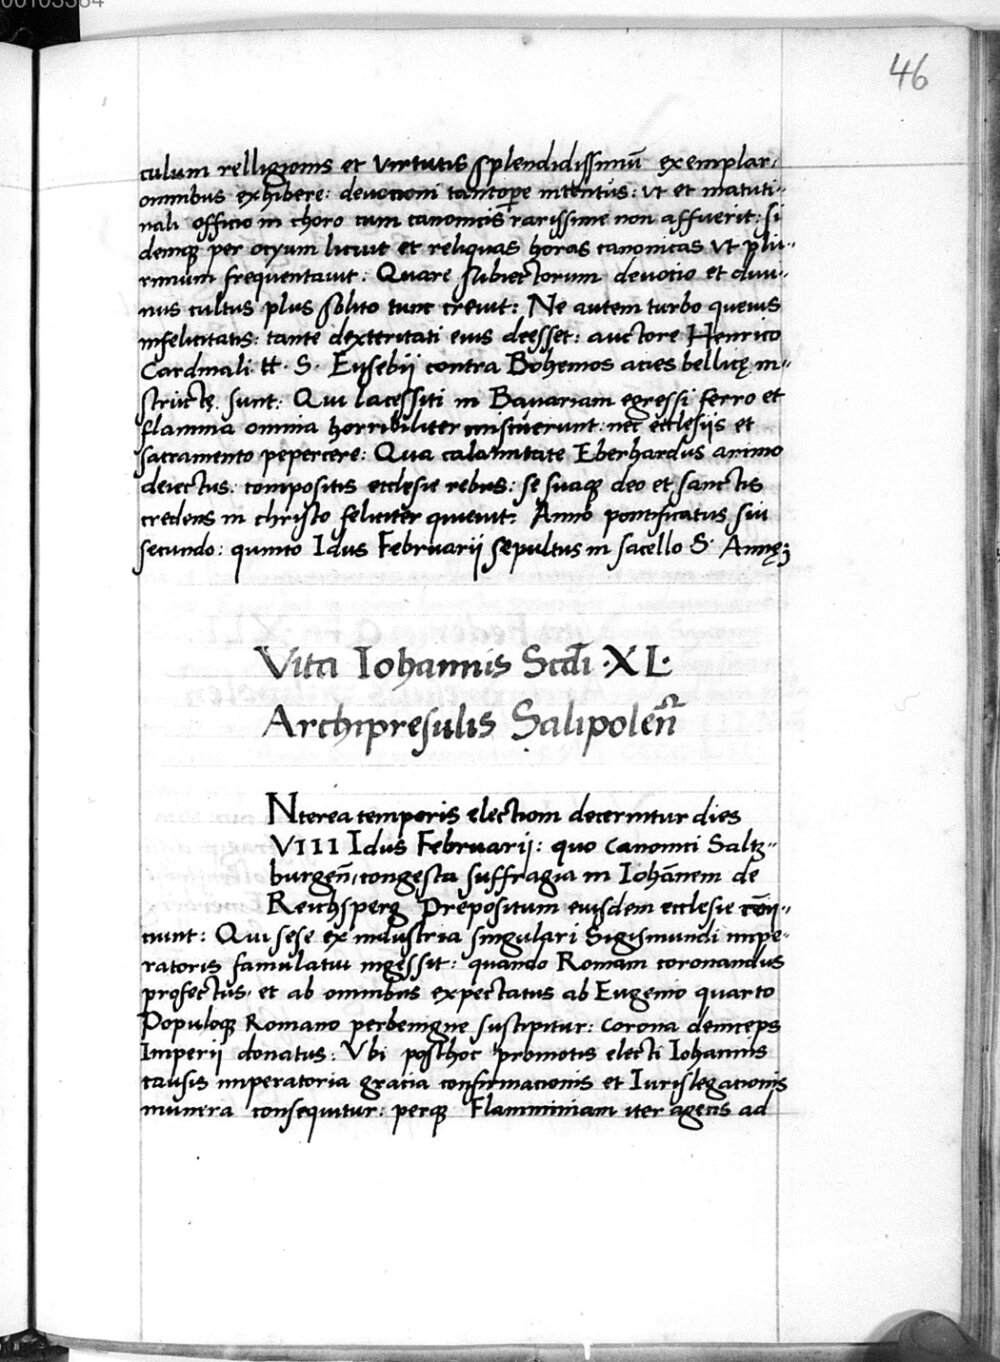 00103384
46
culum relligionis et virtutis splendidissimū exemplar:
omnibus exhibere: devotioni tantopere intentus: vt et matuti-
nali officio in choro cum canonicis rarissime non affuerit: si
demqꝫ per ocyum licuit et reliquas horas canonicas vt plu-
rimum frequentavit: Quare subiectorum devotio et divi-
nus cultus plus solito tunc crevit: Ne autem turbo quevis
infelicitatis: tante dexteritati eius deesset: auctore Henrico
Cardinali tt. S. Eusebij contra Bohemos acies bellicę in-
structę sunt: Qui lacessiti in Bavariam egressi ferro et
flamma omnia horribiliter miscuerunt: nec ecclesijs et
sacramento pepercere: Qua calamitate Eberhardus animo
deiectus: compositis ecclesie rebus: se suaqꝫ deo et sanctis
credens in christo feliciter quievit: Anno pontificatus sui
secundo: quinto Idus Februarij sepultus in sacello S. Annę;
Vita Iohannis Scdi .XL.
Archipresulis Salipoleñ
Nterea temporis electioni decernitur dies
VIII Idus Februarij: quo canonici Saltz-
burgeñ, congesta suffragia in Iohānem de
Reichsperg Prepositum eiusdem ecclesie
ciunt: Qui sese ex industria singulari Sigismundi impe-
ratoris famulatui ingessit: quando Romam coronandus
profectus, et ab omnibus expectatus ab Eugenio quarto
Populoqꝫ Romano perbenigne suscipitur: corona deinceps
Imperij donatus: Vbi posthoc promotis electi Iohannis
causis imperatoria gracia confirmacionis et Iurislegacionis
munera consequitur: perqꝫ Flamminiam iter agens ad